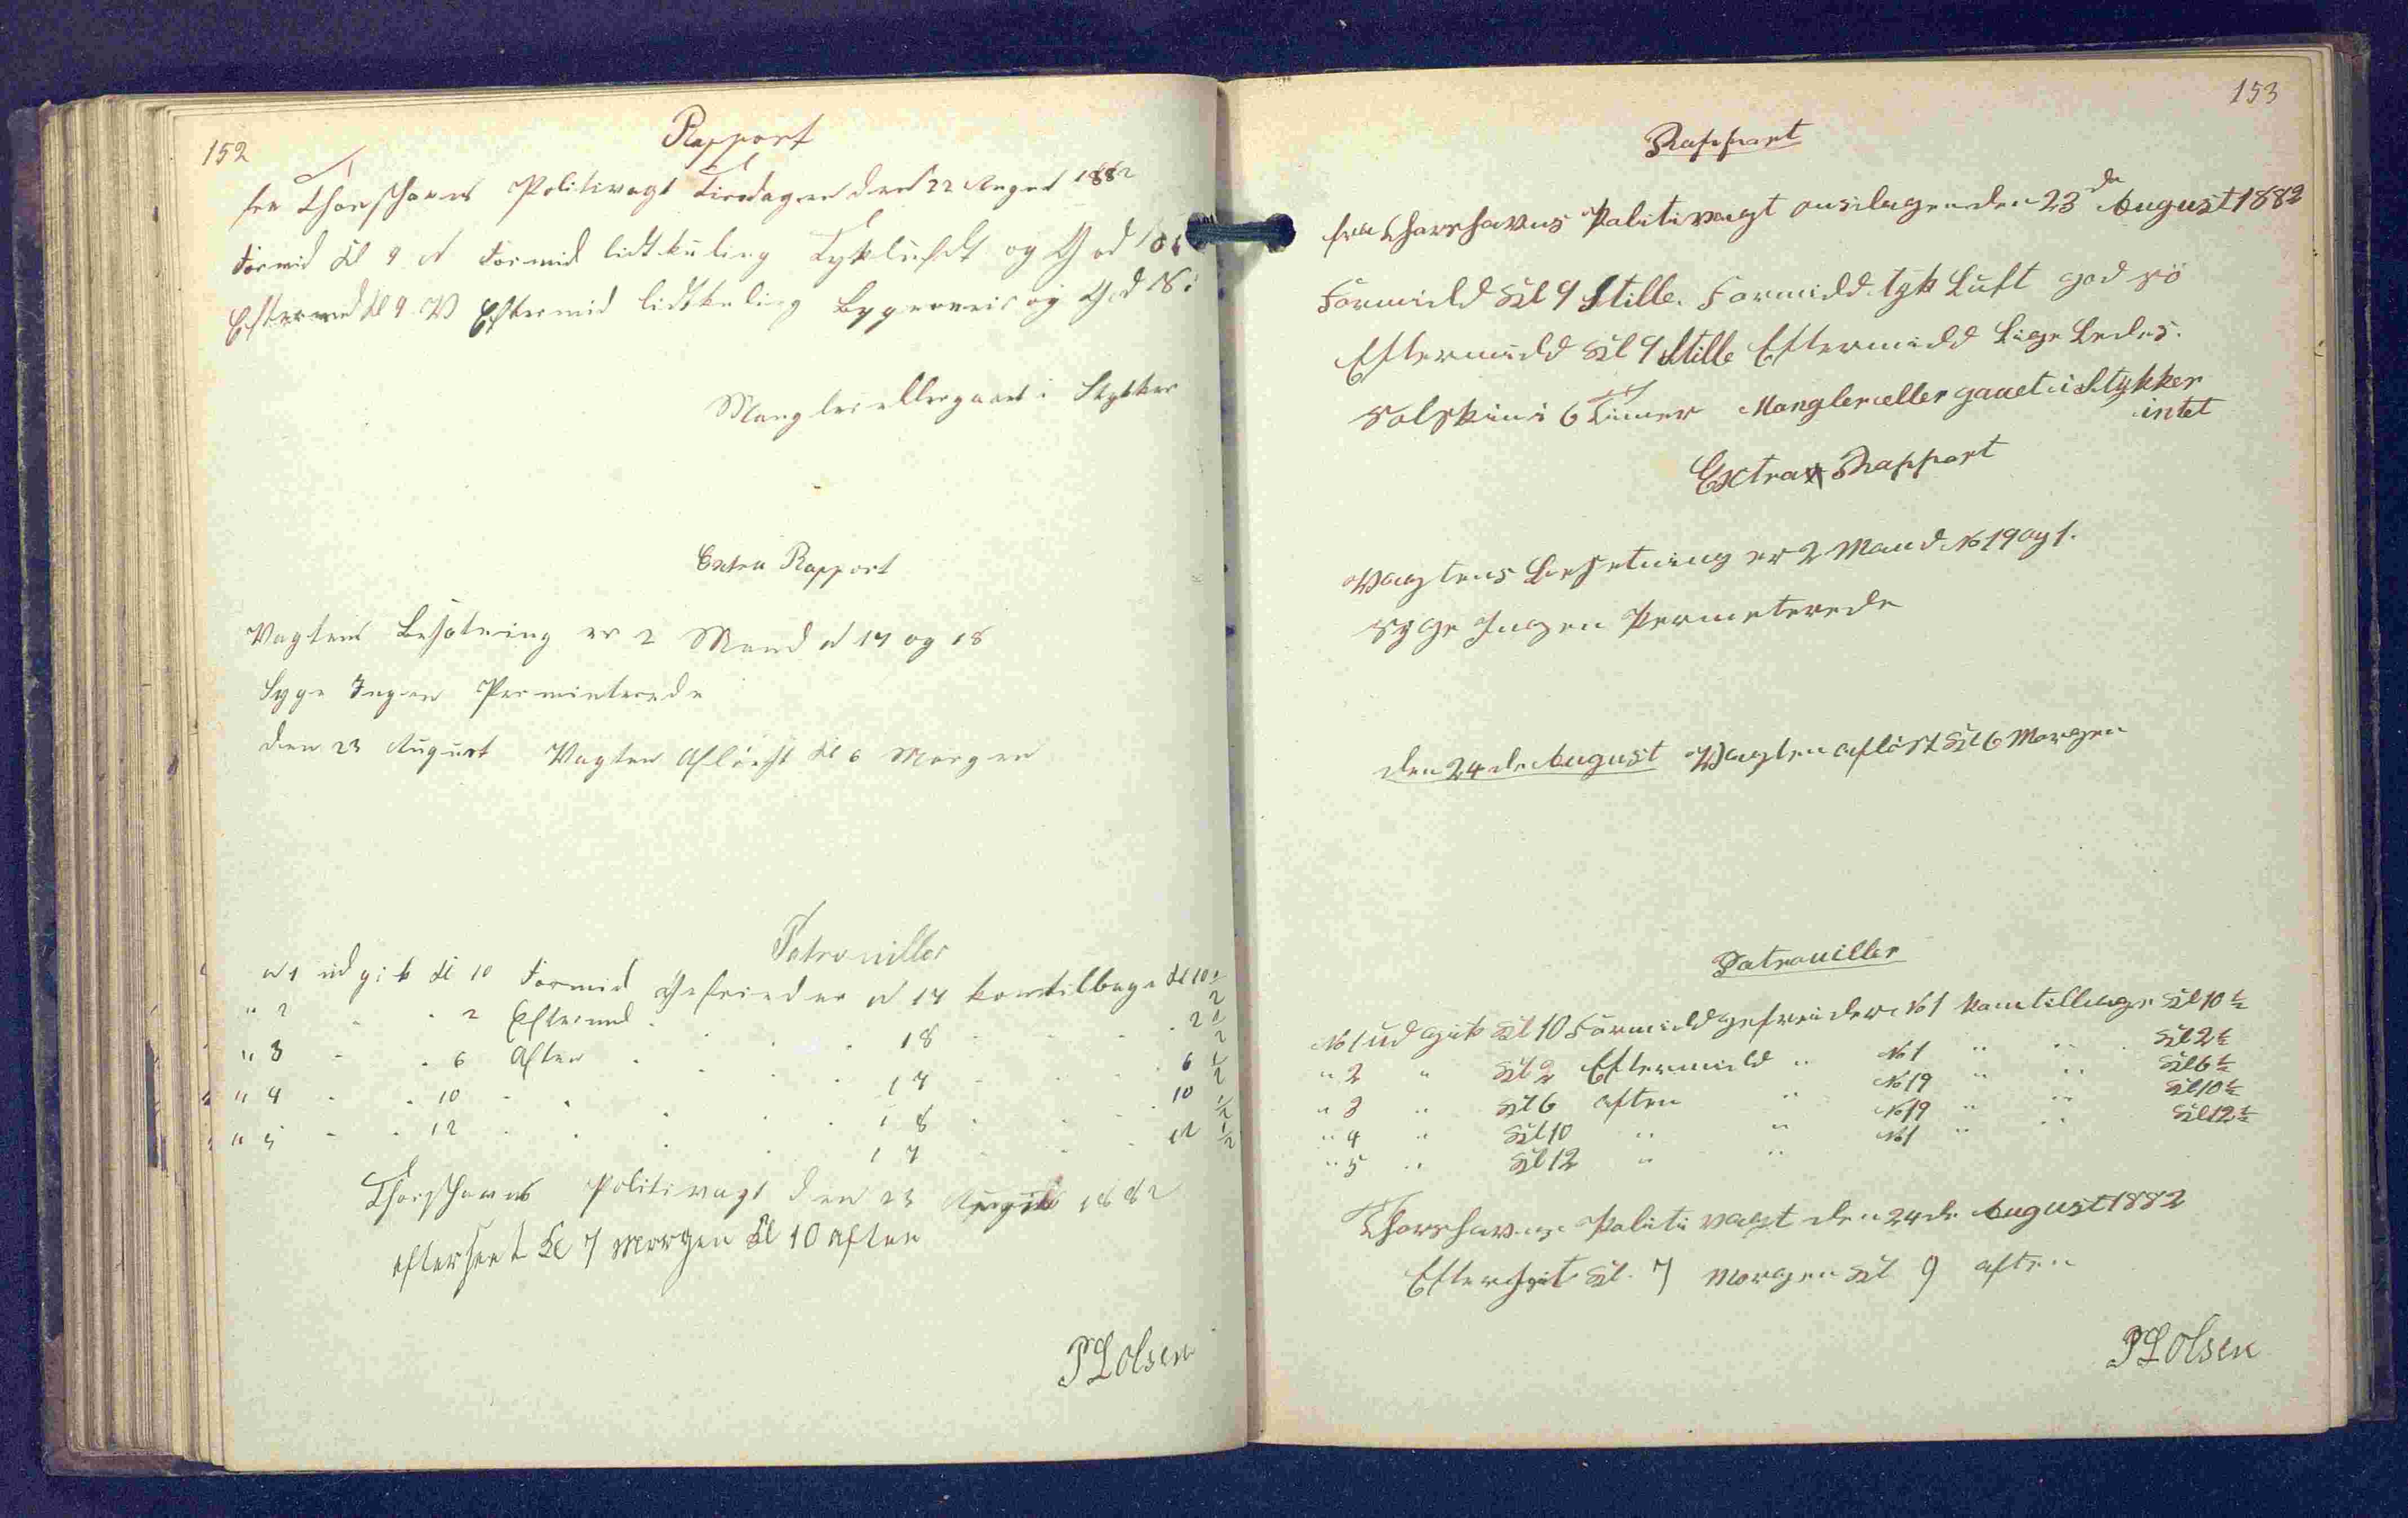 152
Rapport
fra Thorshavns Politivagt Tirsdagen den 22 August 1882
Formid Kl 9 N Formid lidt kuling Tyk luft og God Sö
Eftermid Kl 9 V Eftermid lidt kuling Bygeveir og God Sö
Mangler eller gaaet i Stykker
Extra Rapport
Vagtens Besætning er 2 Mand N 17 og 18
Syge Ingen Perminterede
den 23 August Vagten Aflöst Kl 6 Morgen
Patrouiller
N 1 udgik Kl 10 Formid Gefreider N 17 kom tilbage Kl 10 1/2
" 2 - - 2 Eftermid - - 18 - - 2 1/2
" 3 - - 6 Aften - - 17 - - 6 1/2
" 4 - - 10 - - - 18 - - 10 1/2
" 5 - - 12 - - - 17 - - 12 1/2
Thorshavns Politivagt den 23 August 1882
efterseet Kl 7 Morgen Kl 10 aften
PLOlsen
153
Rapport
fra Thorshavns Politivagt onsdagen den 23de August 1882
Formidd Kl 9 Stille. Formidd. tyk Luft god sö
Eftermidd Kl 9 Stille Eftermidd Lige Ledes.
Solskin i 6 Timer Mangler eller gaaet i Stykker
intet
Extra Rapport
Vagtens Besetning er 2 Mand No 19 og 1.
Syge Ingen Permeterede
den 24de August Vagten aflöst Kl 6 Morgen
Patrouiller
No 1 udgik Kl 10 Formidd gefreider No 1 kom tilbage Kl 10 1/2
" 2 " Kl 2 Eftermidd " No 1 " " Kl 2 1/2
" 3 " Kl 6 aften " No 19 " " Kl 6 1/2
" 4 " Kl 10 " " No 19 " " Kl 10 1/2
" 5 " Kl 12 " " No 1 " " Kl 12 1/2
Thorshavns Politi vagt den 24de August 1882
Efterseet Kl. 7 Morgen Kl 9 aften
PLOlsen